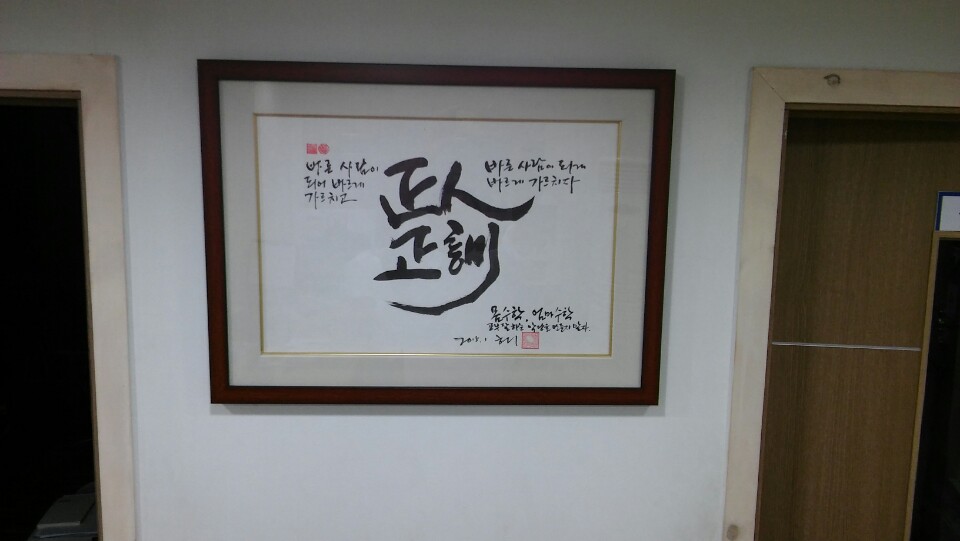 바른 사람이
되어 바르게
가르치고
正人
正訓
바른 사람이 되게
바르게 가르치다
맘수학. 엄마수학
말라.